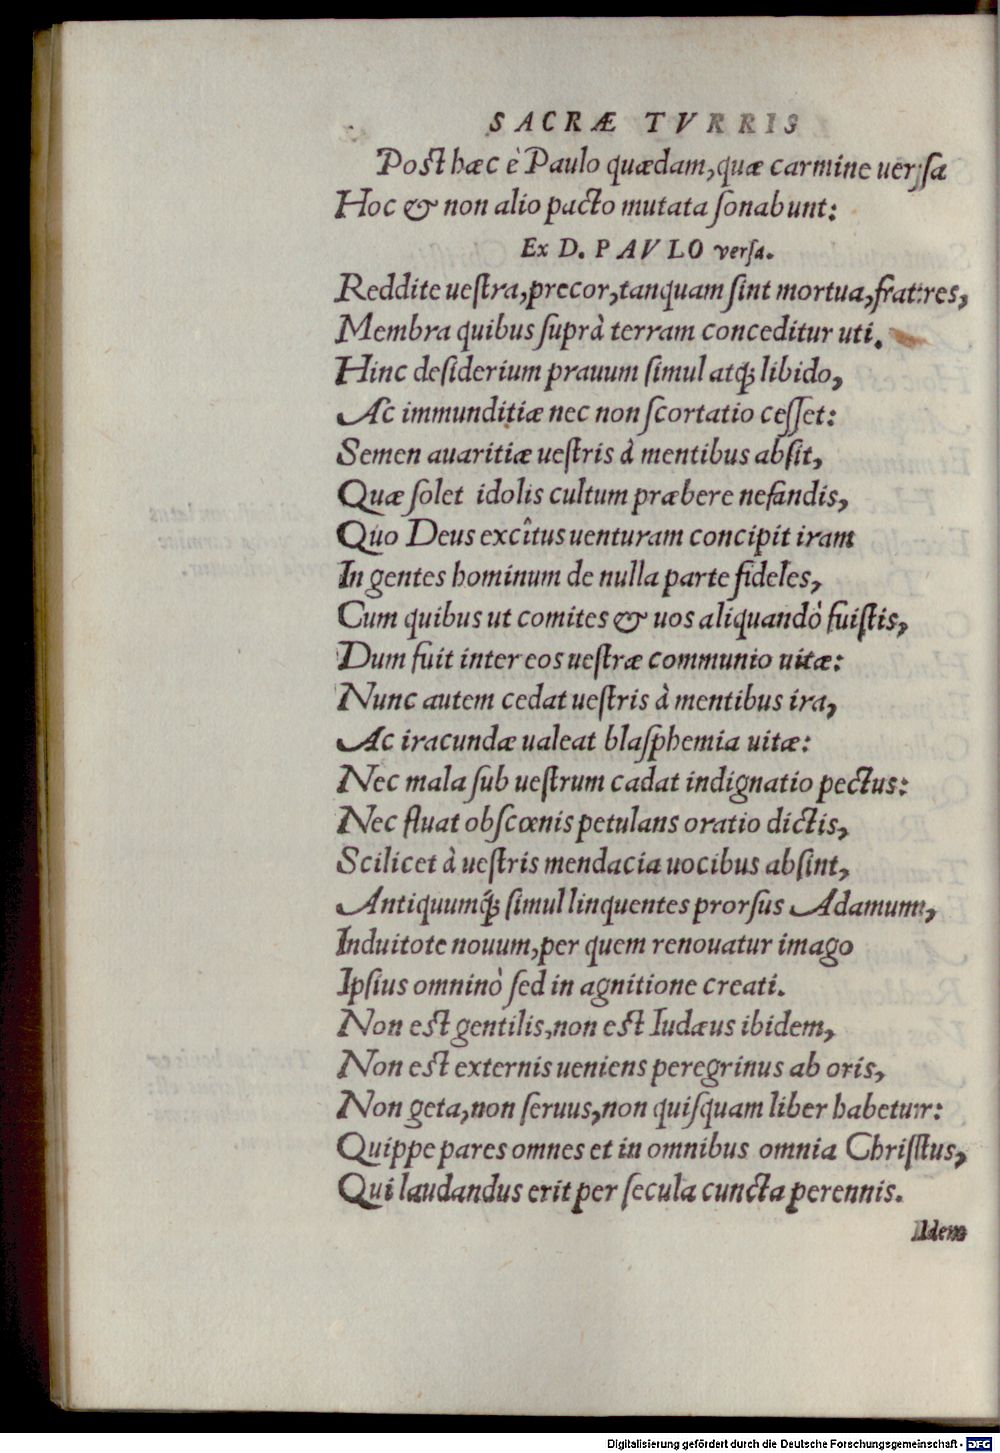 SACRÆ TVRRIS
Post hæc è Paulo quædam, quæ carmine uersa
Hoc & non alio pacto mutata sonabunt:
Ex D. PAVLO versa.
Reddite uestra, precor, tanquam sint mortua, fratres,
Membra quibus suprà terram conceditur uti.
Hinc desiderium prauum simul atq; libido,
Ac immunditiæ nec non scortatio cesset:
Semen auaritiæ uestris à mentibus absit,
Quæ solet idolis cultum præbere nefandis,
Quo Deus excîtus uenturam concipit iram
In gentes hominum de nulla parte fideles,
Cum quibus ut comites & uos aliquandò fuistis,
Dum fuit inter eos uestræ communio uitæ:
Nunc autem cedat uestris à mentibus ira,
Ac iracundæ ualeat blasphemia uitæ:
Nec mala sub uestrum cadat indignatio pectus:
Nec fluat obscœnis petulans oratio dictis,
Scilicet à uestris mendacia uocibus absint,
Antiquumq́; simul linquentes prorsus Adamum,
Induitote nouum, per quem renouatur imago
Ipsius omninò sed in agnitione creati.
Non est gentilis, non est Iudæus ibidem,
Non est externis ueniens peregrinus ab oris,
Non geta, non seruus, non quisquam liber habetur:
Quippe pares omnes et in omnibus omnia Christus,
Qui laudandus erit per secula cuncta perennis.
Idem
Digitalisierung gefördert durch die Deutsche Forschungsgemeinschaft - DFG